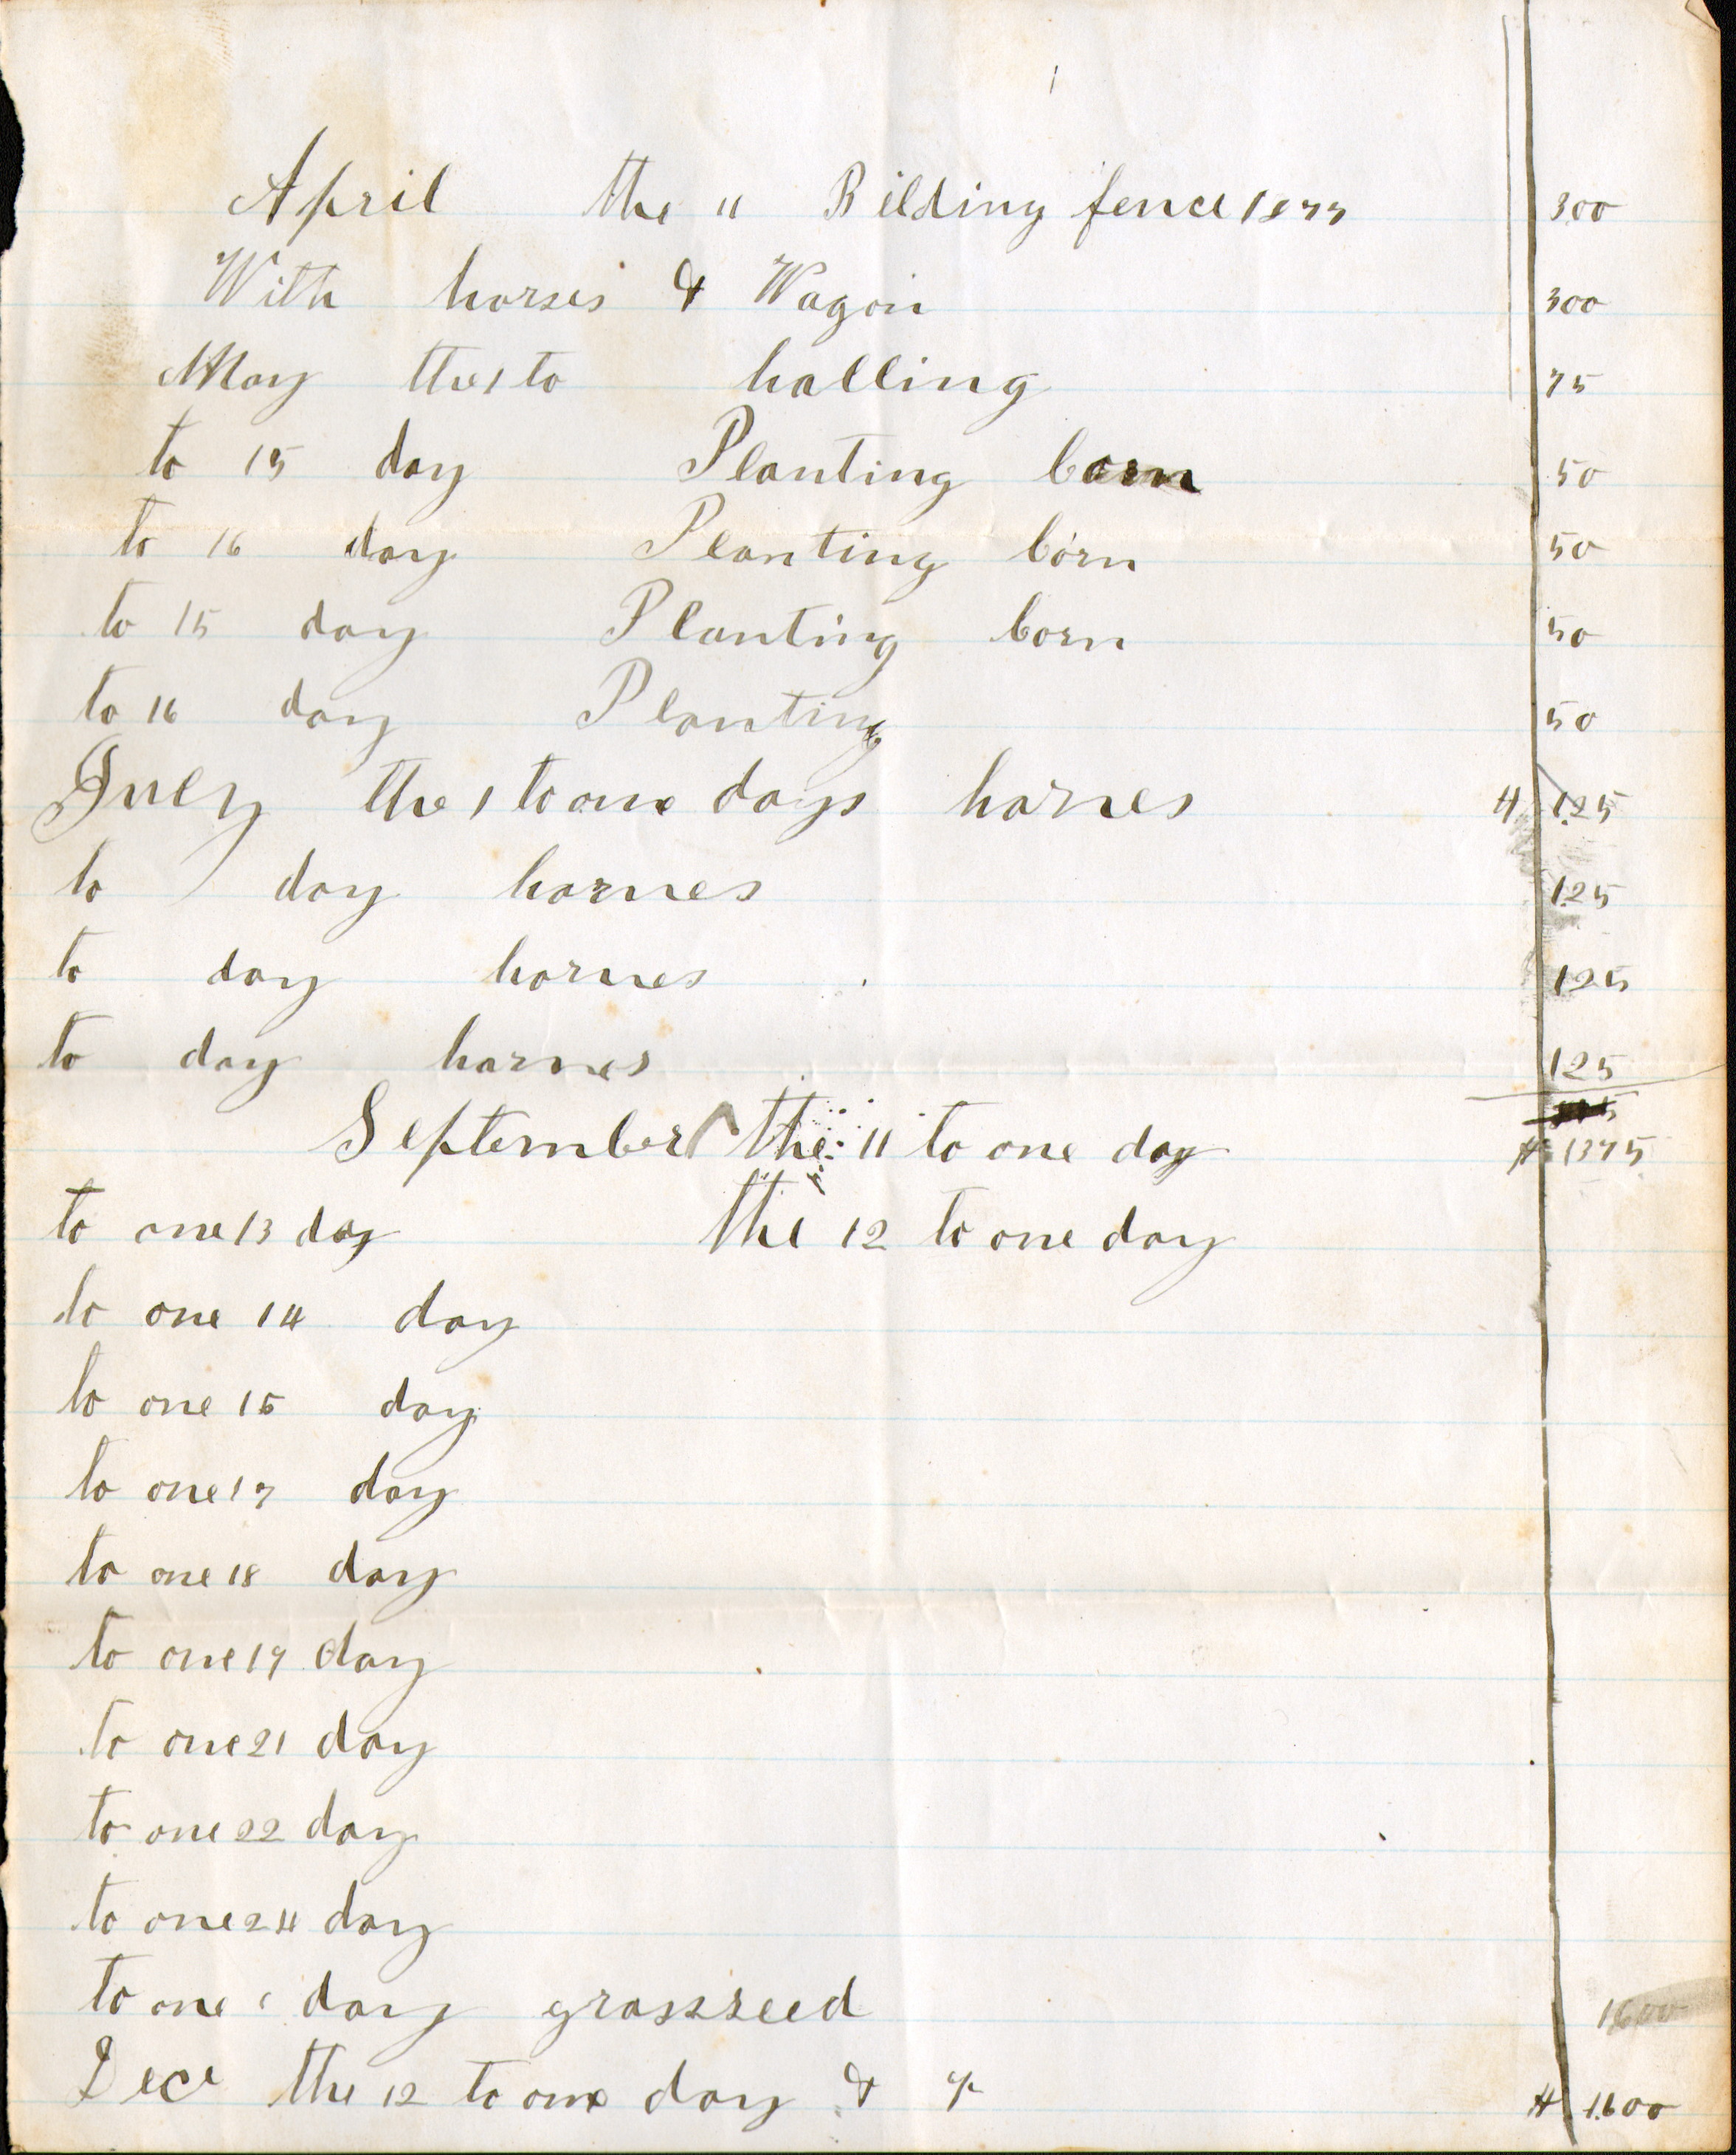 April the 11 Bilding fence 1877 300
With horses & Wagon 300
May the 1 to halling 75
to 15 day Planting Corn 50
to 16 day Planting Corn 50
to 15 day Planting Corn 50
to 16 day Planting 50
July the 1 to one days harnes # 1.25
to 1 day harnes 1.25
to day harnes 125
to day harnes 125
September the 11 to one day # 1375
to one 13 day the 12 to one day
to one 14 day
to one 15 day
to one 17 day
to one 18 day
to one 19 day
to one 21 day
to one 22 day
to one 24 day
to one day grassseed 1600
Dec the 12 to one day & # 1600